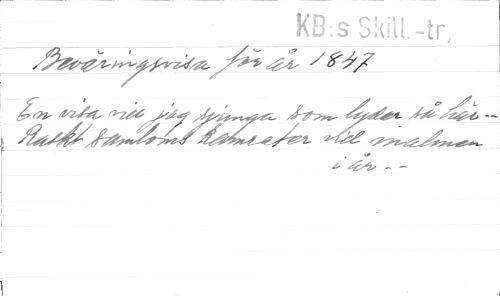 KB:s Skill.-tr.
Beväringsvisa för år 1847
En visa vill jag sjunga som lyder så här --
Raskt samloms kamrater till malmen
i år --